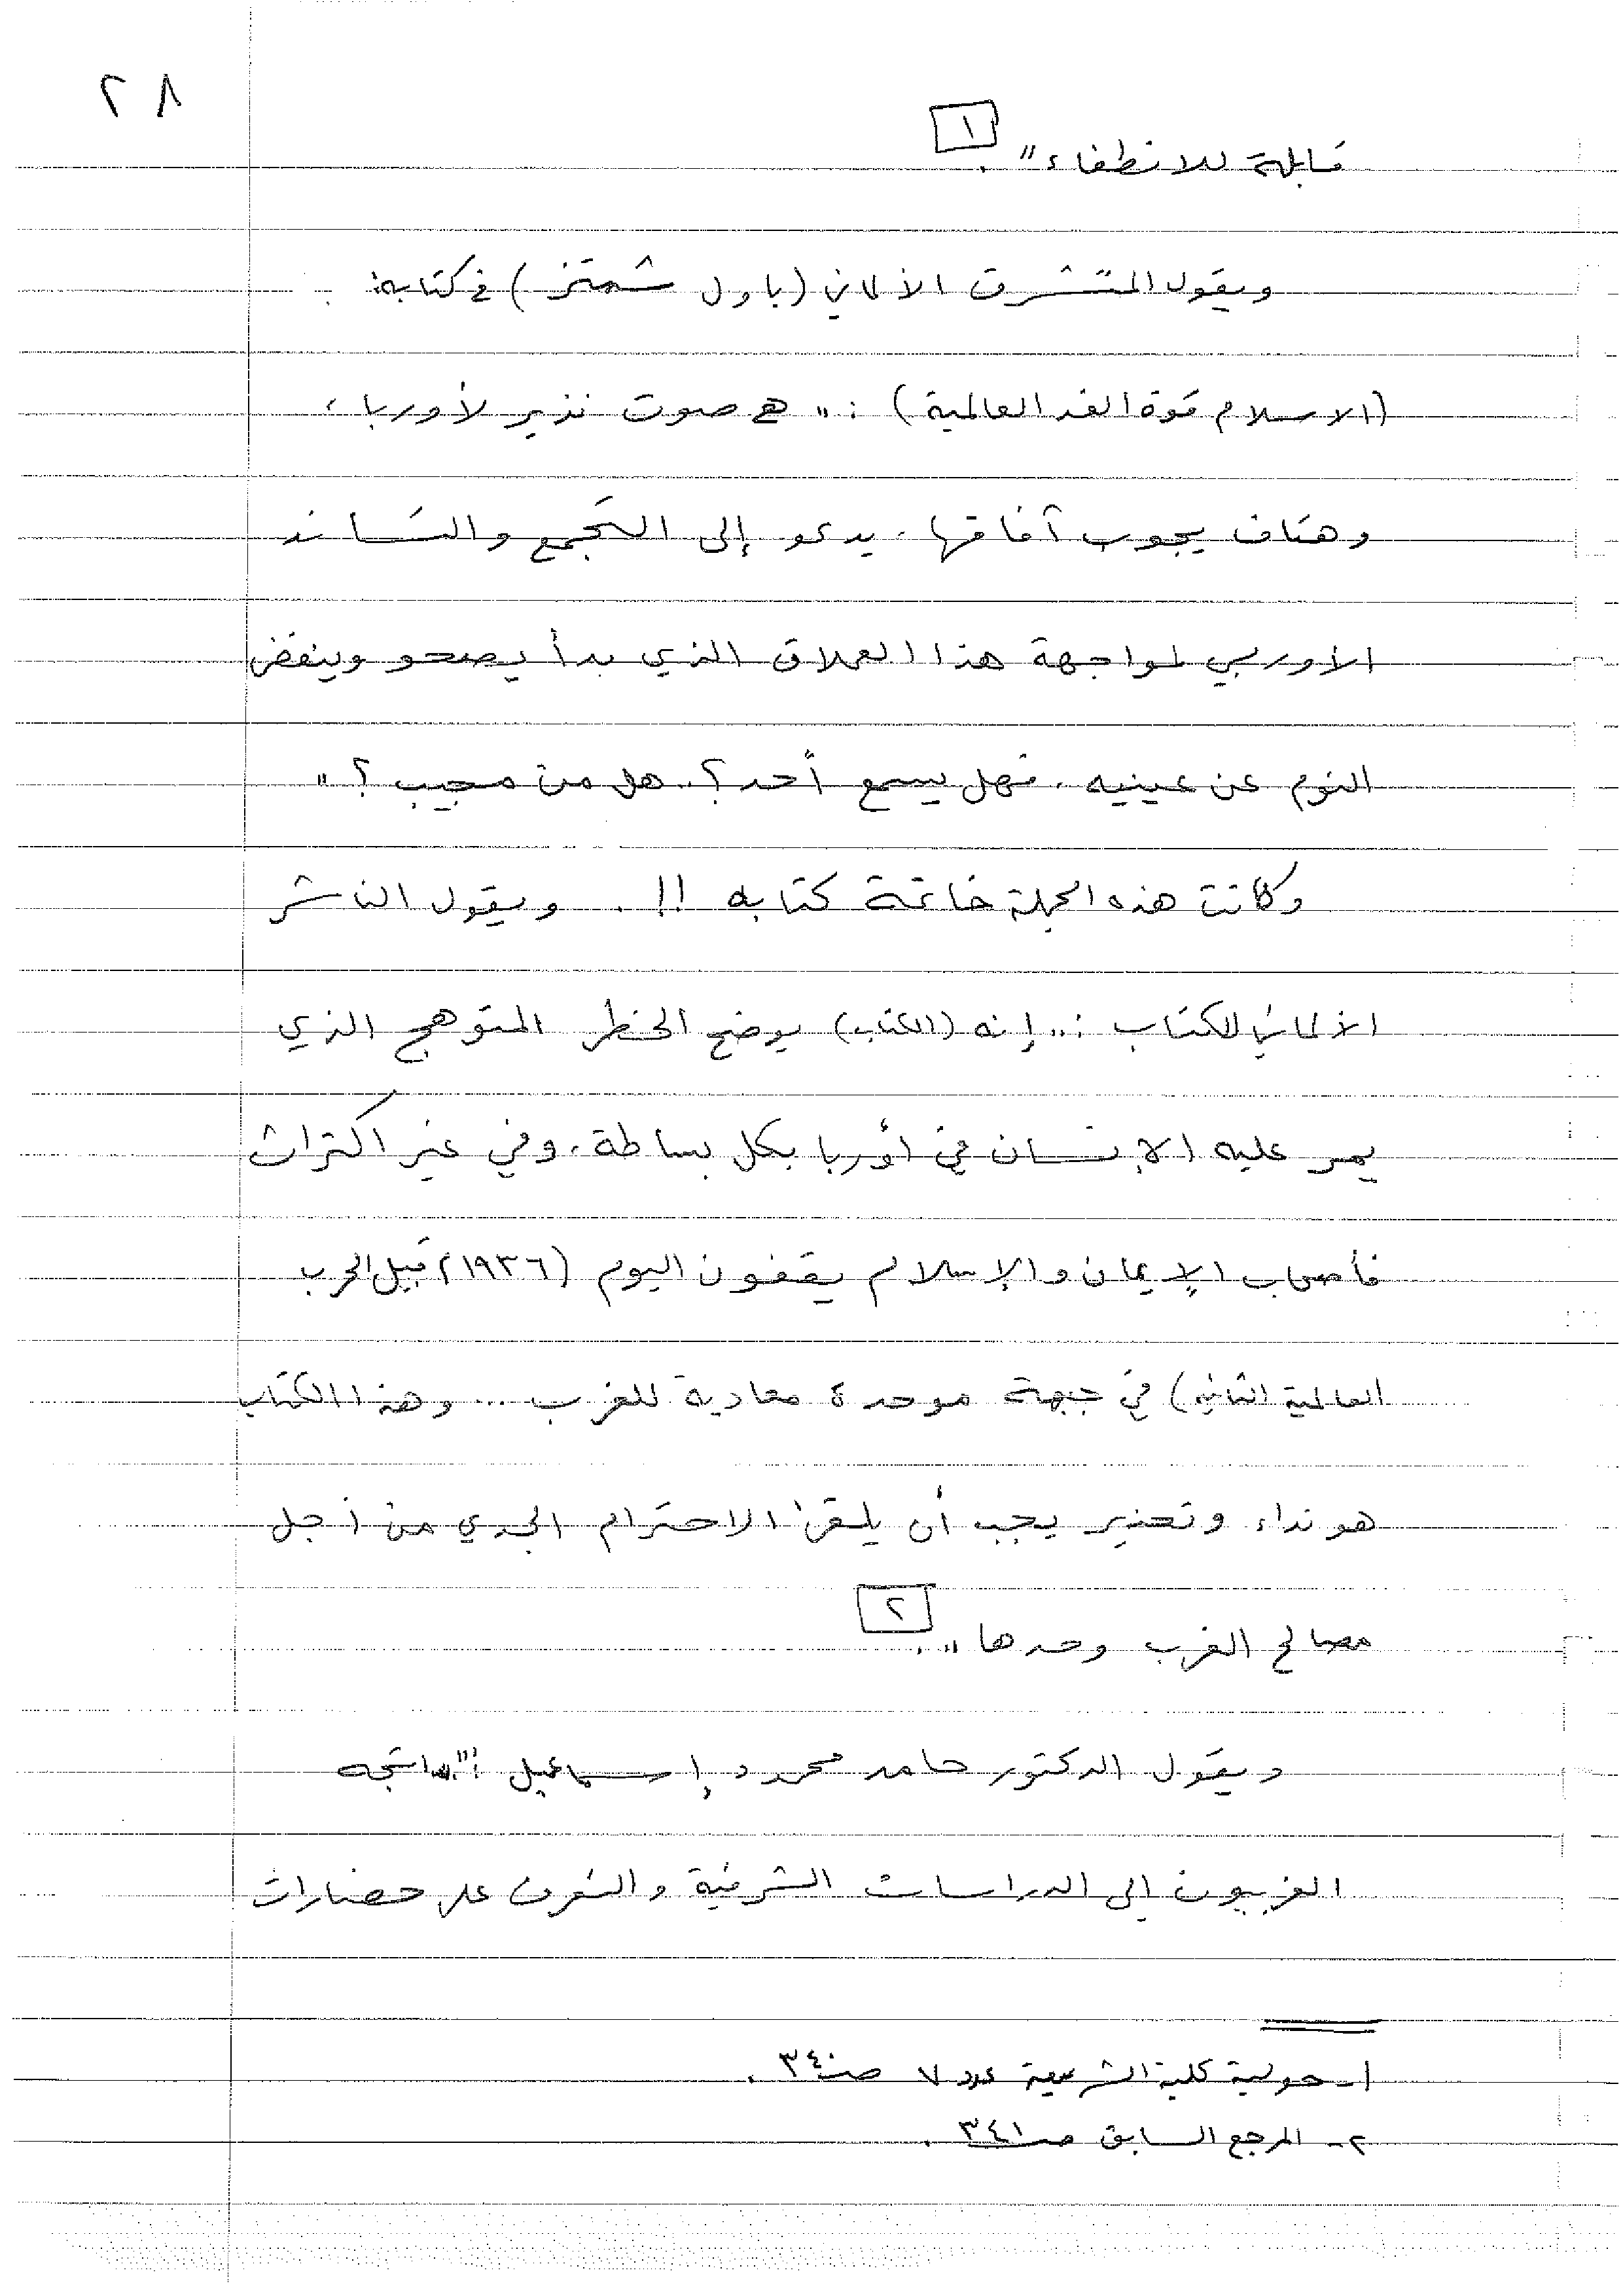 ٢٨
قابلة للانطفاء" . [١]
ويقول المستشرق الألماني (باول شمتز) في كتابه:
(الاسلام قوة الغد العالمية) : " هو صوت نذير لأوربا ،
وهتاف يجوب آفاقها . يدعو إلى التجمع والتساند
الأوربي لمواجهة هذا العملاق الذي بدأ يصحو وينفض
النوم عن عينيه . فهل يسمع أحد ؟ . هل من مجيب ؟ "
وكانت هذه الجملة خاتمة كتابه !! . ويقول الناشر
الألماني للكتاب : " إنه (الكتاب) يوضح الخطر المتوهج الذي
يمر عليه الإنسان في أوربا بكل بساطة . وفي غير اكتراث
فأصحاب الإيمان والإسلام يقفون اليوم (١٩٣٦م قبيل الحرب
العالمية الثانية) في جبهة موحدة معادية للغرب ... وهذا الكتاب
هو نداء وتحذير يجب أن يلقى الاحترام الجدي من أجل
مصالح الغرب وحدها " . [٢]
ويقول الدكتور حامد محمود إسماعيل : " اتجه
الغربيون إلى الدراسات الشرقية والتعرف على حضارات
١ـ حولية كلية الشريعة عدد ٧ صـ٣٤٠ .
٢ـ المرجع السابق صـ٣٤١ .